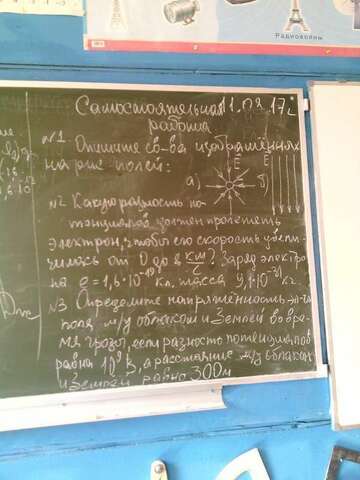 Радиоволны
Самостоятельная 11.02.17г
работа
N1 Опишите св-ва изображённых
на рис полей:
а) E б) E
N2 Какую разность по-
тенциалов должен пролететь
электрон, чтобы его скорость увели-
чилась от 0 до 8 км/с? Заряд электро-
на e = 1,6·10⁻¹⁹ Кл, масса 9,1·10⁻³¹ кг.
N3 Определите напряженность эл-го
поля м/у облаком и Землей во вре-
мя грозы, если разность потенциалов
равна 10⁹ В, а расстояние м/у облаком
и Землей равно 300м